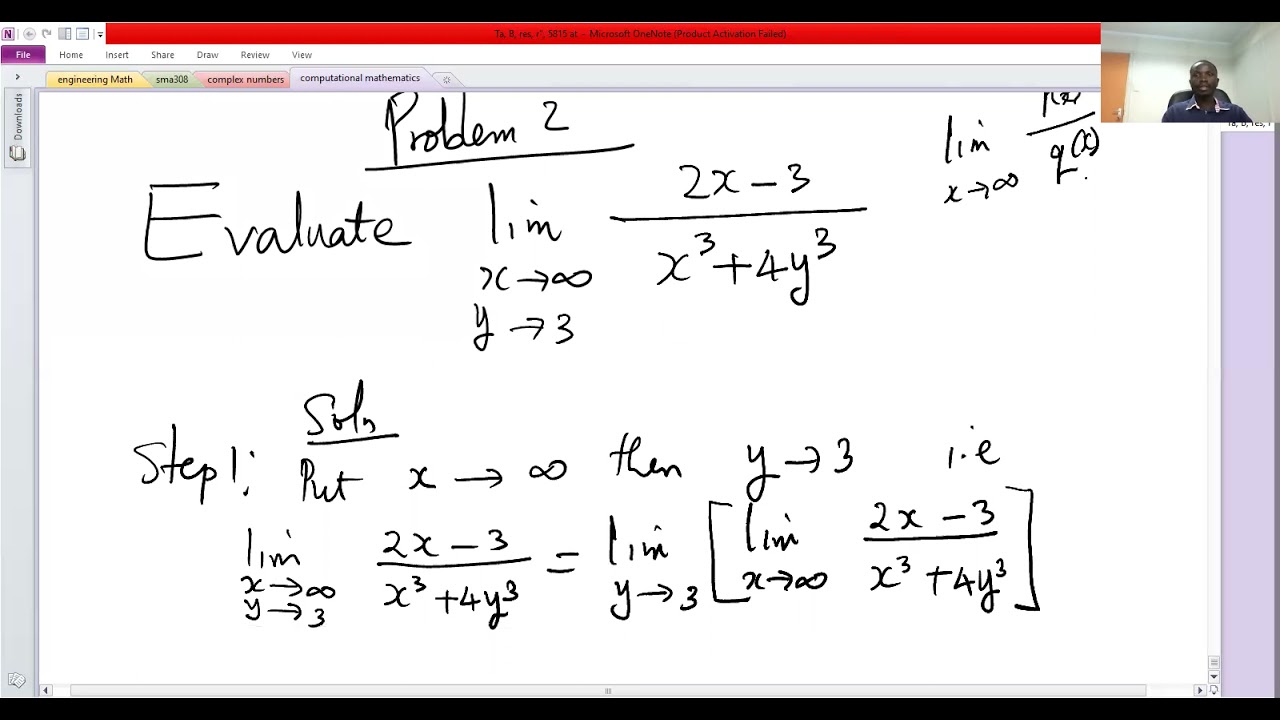 Ta, B, res, r", 5815 at - Microsoft OneNote (Product Activation Failed)
File Home Insert Share Draw Review View
engineering Math sma308 complex numbers computational mathematics
Downloads
Problem 2
Evaluate lim 2x - 3
x → ∞ x³ + 4y³
y → 3
lim
x → ∞ q(x)
Soln
Step 1: Put x → ∞ then y → 3 i.e
lim 2x - 3 = lim [ lim 2x - 3 ]
x → ∞ x³ + 4y³ y → 3 x → ∞ x³ + 4y³
y → 3